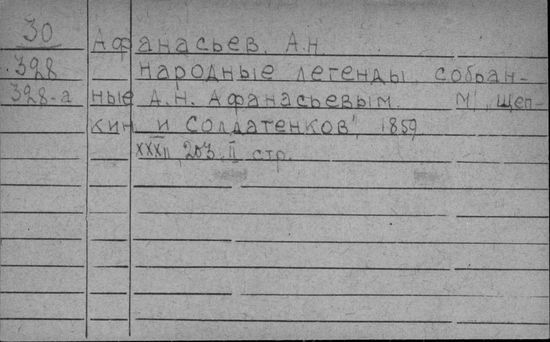 30
Афанасьев. А.Н.
398 народные легенды собран-
398-а ные А.Н. Афанасьевым. М., Щеп-
кин и Солдатенков", 1859
XXXII, 203, II стр.